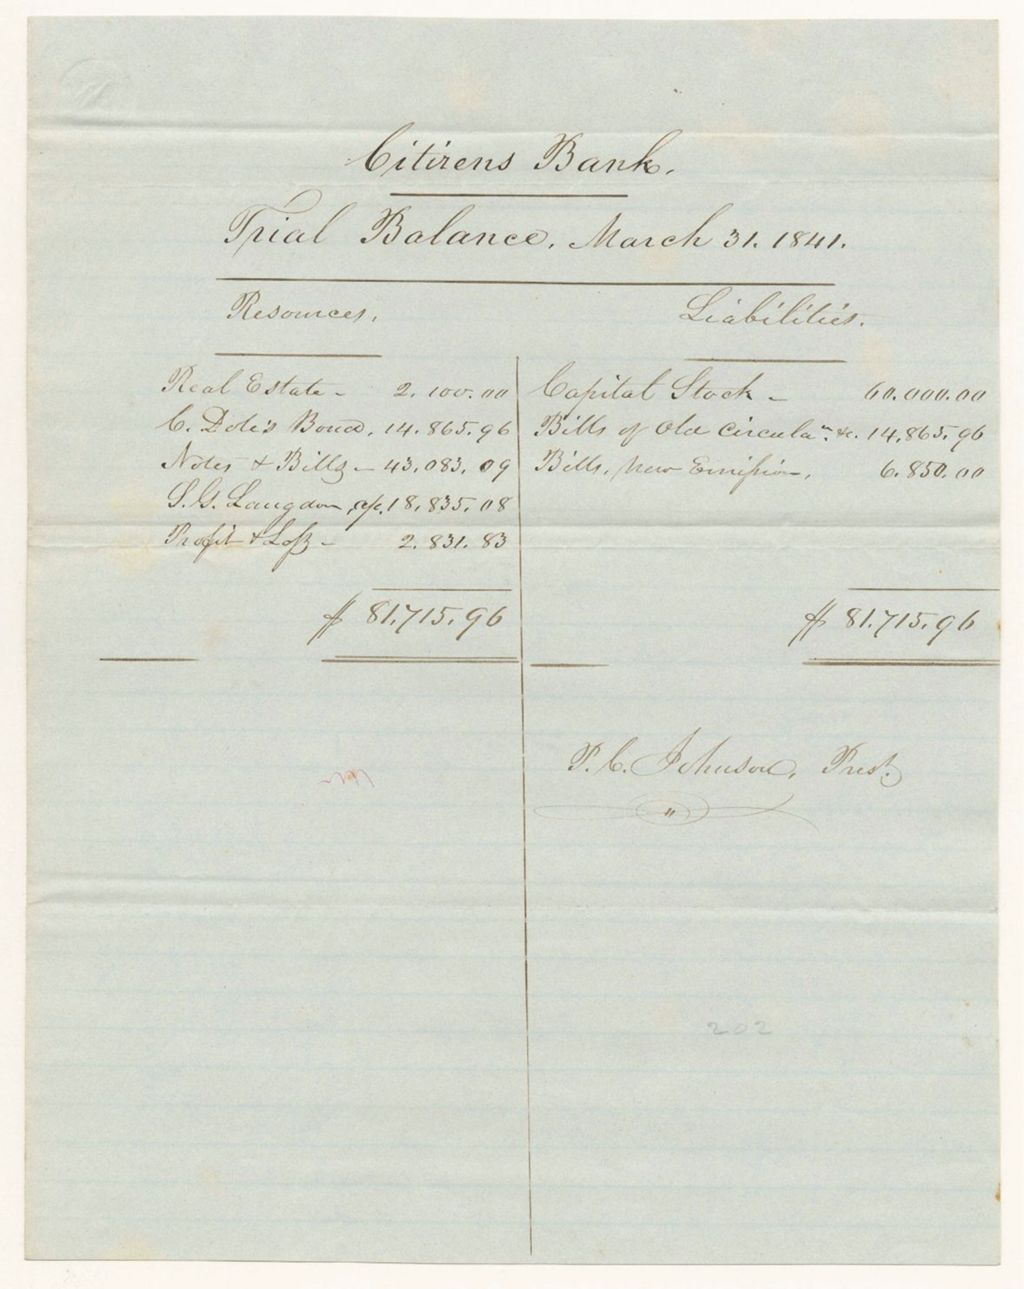 Citizens Bank.
Trial Balance, March 31. 1841.
Resources.
Real Estate - 2.100.00
C. Dole's Bond, 14.865.96
Notes & Bills - 43.083.09
S. G. Langdon, a/c. 18.835.08
Profit & Loss - 2.831.83
$ 81.715.96
Liabilities.
Capital Stock - 60.000.00
Bills of Old Circulan. &c. 14,865.96
Bills, New Emission, 6.850.00
$ 81.715.96
P. C. Johnson, Prest.
202